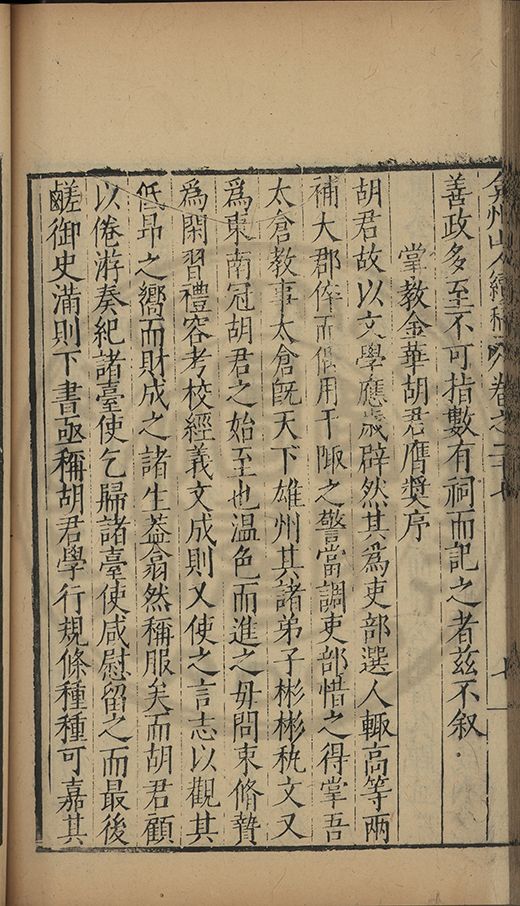 弇州山人續稿 卷之二十七 七
善政多至不可指數有祠而記之者茲不叙
掌教金華胡君膺奬序
胡君故以文學應歲辟然其為吏部選人輙高等兩
補大郡倅而偶用干陬之警當調吏部惜之得掌吾
太倉教事太倉旣天下雄州其諸弟子彬彬秇文又
為東南冠胡君之始至也温色而進之毋問束脩贄
為閑習禮容考校經義文成則又使之言志以觀其
低昂之嚮而財成之諸生葢翕然稱服矣而胡君顧
以倦游奏紀諸臺使乞歸諸臺使咸慰留之而最後
鹺御史滿則下書亟稱胡君學行規條種種可嘉其